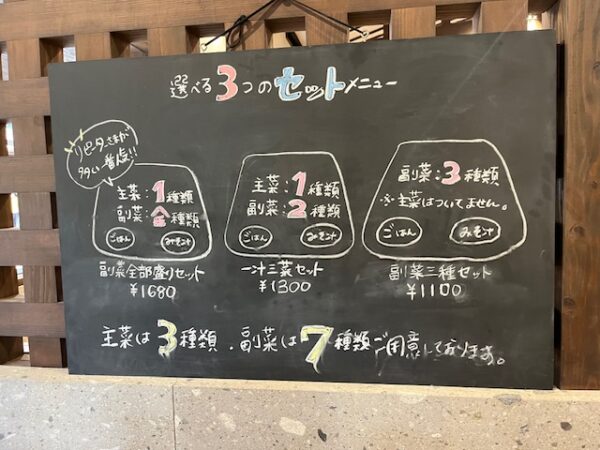 選べる3つのセットメニュー
リピーターさまが
多い
一番人気!!
主菜:1種類
副菜:全種類
ごはん
みそ汁
副菜全部盛りセット
¥1680
主菜:1種類
副菜:2種類
ごはん
みそ汁
一汁三菜セット
¥1300
副菜:3種類
※主菜はついてません。
ごはん
みそ汁
副菜三種セット
¥1100
主菜は3種類、副菜は7種類ご用意しております。